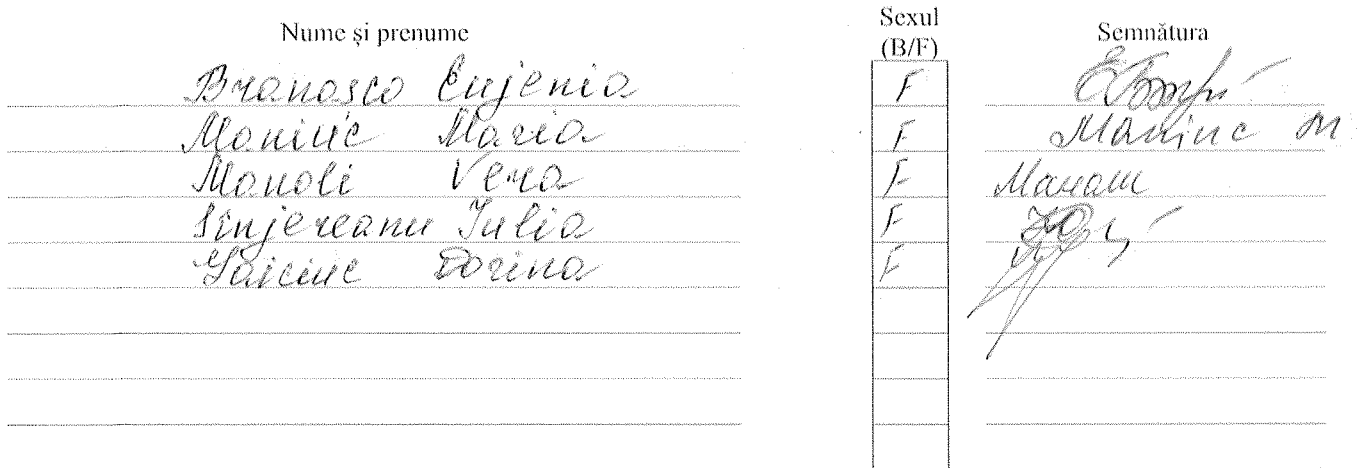 Nume și prenume Sexul (B/F) Semnătura
Branasco Eugenia F
Maniuc Maria F Maniuc M
Manoli Vera F Манош
Sinjereanu Iulia F
Gaiciuc Dorina F